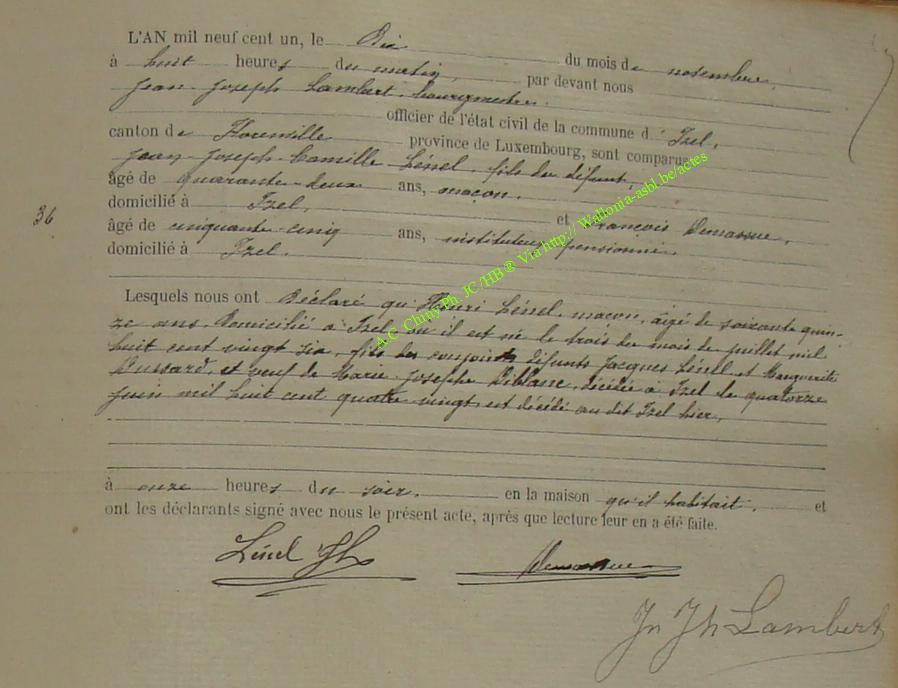 L'AN mil neuf cent un, le Dix du mois de novembre
à huit heures du matin, par devant nous
Jean Joseph Lambert bourgmestre
officier de l'état civil de la commune d'Izel,
canton de Florenville province de Luxembourg, sont comparus
Jean-Joseph-Camille Lénel, fils du défunt,
âgé de quarante-deux ans, maçon,
domicilié à Izel, et François Demasune,
36
âgé de cinquante cinq ans, instituteur pensionné,
domicilié à Izel.
Lesquels nous ont Déclaré qu'Henri Lénel, maçon, âgé de soixante quin-
ze ans, Domicilié à Izel, où il est né le trois du mois de juillet mil
huit cent vingt six, fils des conjoints défunts Jacques Lénel et Marguerite
et veuf de Marie Josephe décédée à Izel le quatorze
juin mil huit cent quatre vingt, est décédé au dit Izel hier,
à onze heures du soir, en la maison qu'il habitait, et
ont les déclarants signé avec nous le présent acte, après que lecture leur en a été faite.
Lénel Jh
Jn Jh Lambert
A.C. Chiny Ph. JC /HB® Via http:// Wallonia-asbl.be/actes